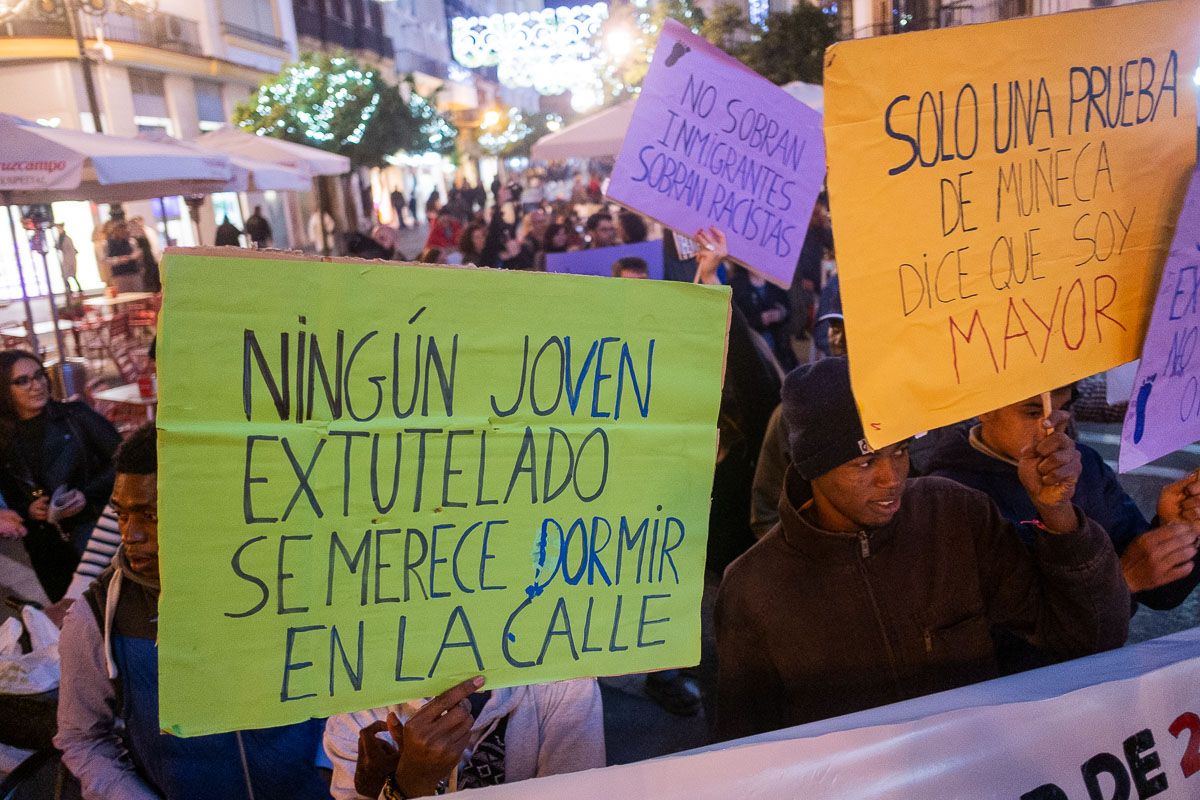 NINGÚN JOVEN
EXTUTELADO
SE MERECE DORMIR
EN LA CALLE
NO SOBRAN
INMIGRANTES
SOBRAN RACISTAS
SOLO UNA PRUEBA
DE MUÑECA
DICE QUE SOY
MAYOR
NO
DE 2